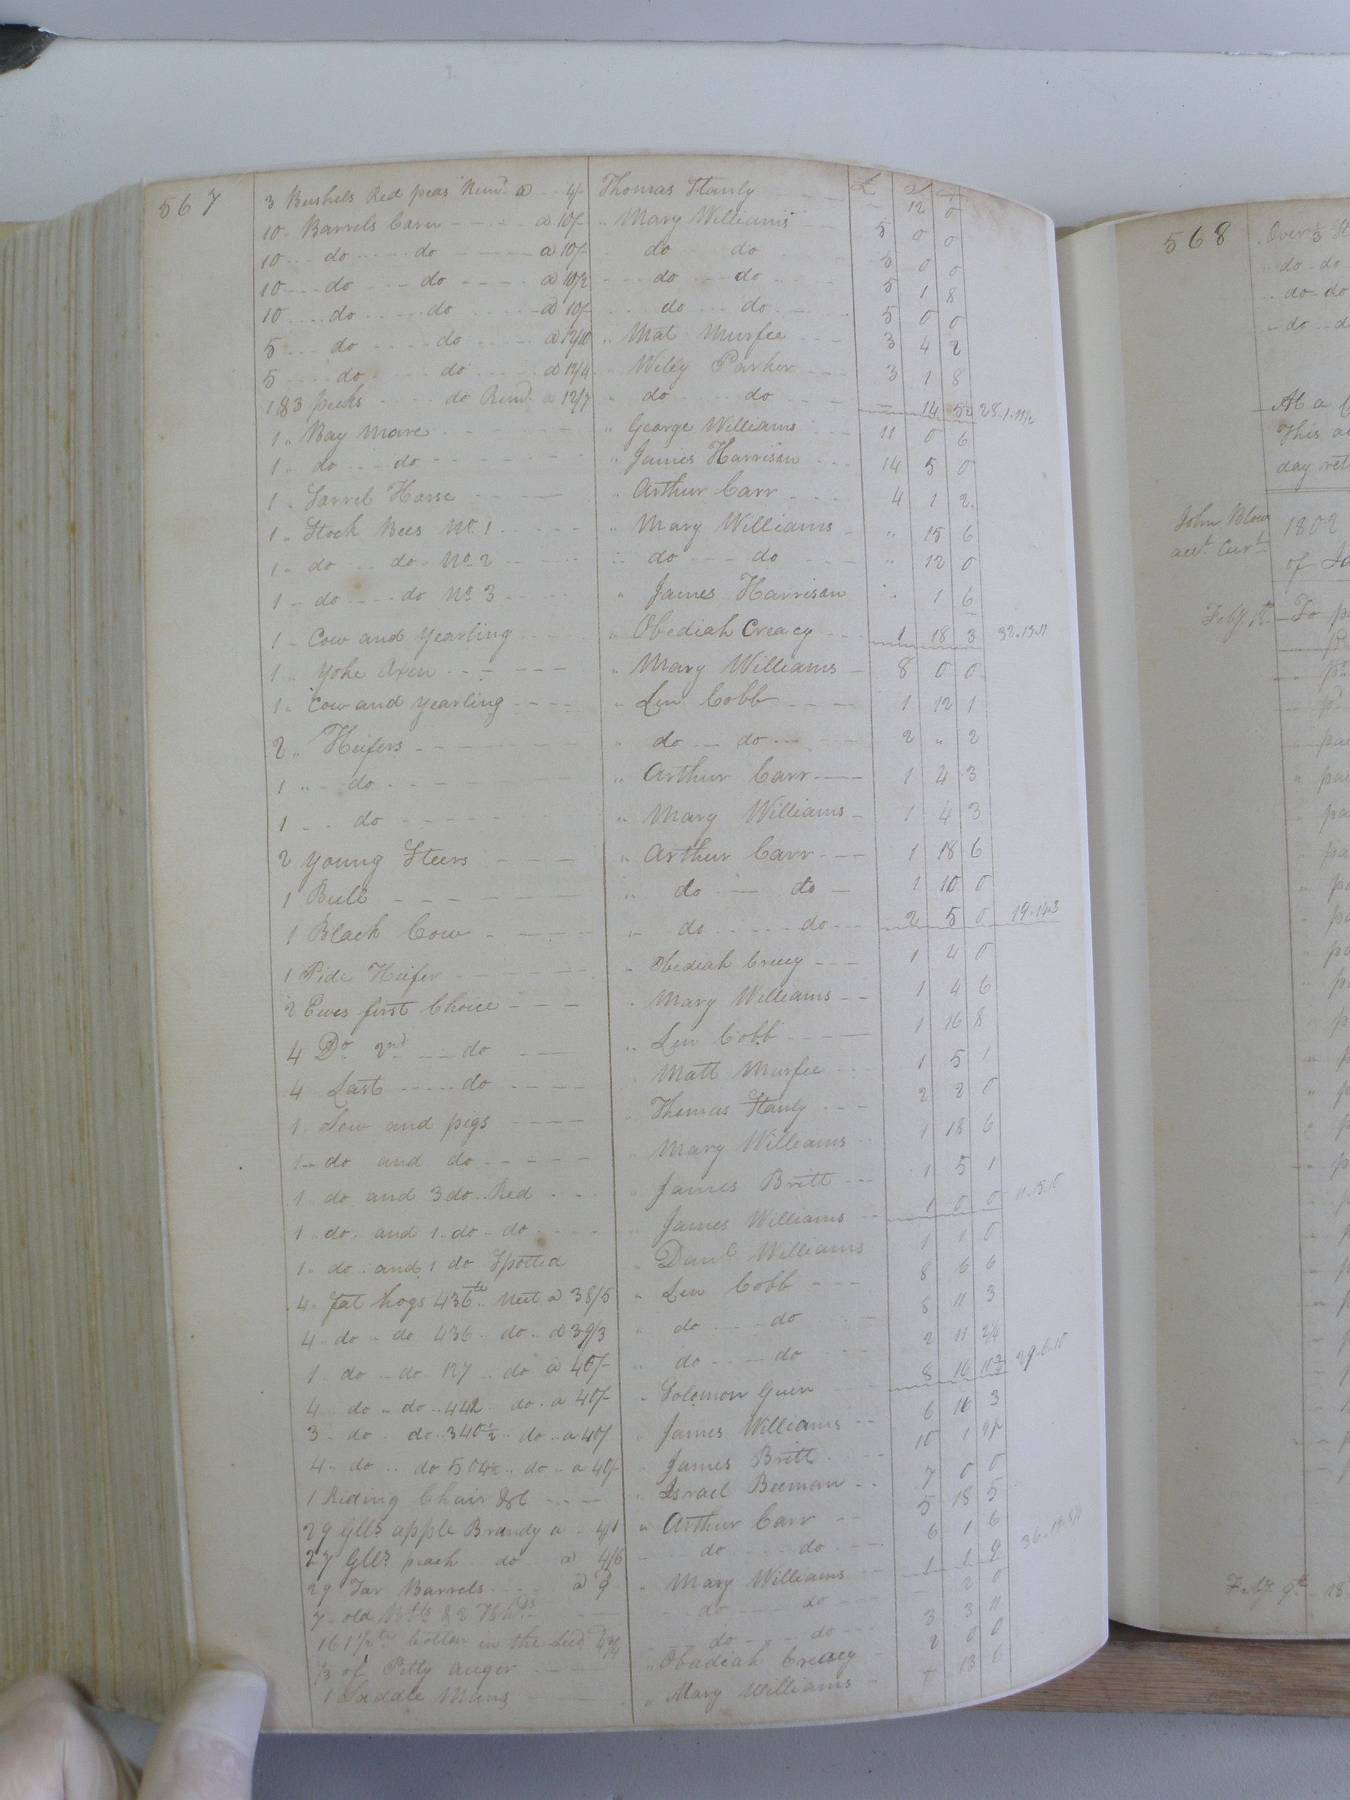 567
£ s d
3 Bushels Red peas Remd. a 4/- Thomas Stanly - 12 0
10 Barrels Corn a 10/- Mary Williams 5 0 0
10 do do a 10/- do do 5 0 0
10 do do a 10/2 do do 5 1 8
10 do do a 10/- do do 5 0 0
5 do do a 12/10 Mat Murfee 3 4 2
5 do do a 12/4 Wiley Parker 3 1 8
183 pecks do Remd. a 12/7 do do - 14 5½ 28.1.11½
1 Bay Mare George Williams 11 0 6
1 do do James Harrison 14 5 0
1 Sorrel Horse Arthur Carr 4 1 2
1 Stock Bees No. 1 Mary Williams " 15 6
1 do do No. 2 do do " 12 0
1 do do No. 3 James Harrison " 1 6
1 Cow and Yearling Obediah Creacy 1 18 3 32.13.11
1 Yoke Oxen Mary Williams 8 0 0
1 Cow and Yearling Lew Cobb 1 12 1
2 Heifers do do 2 " 2
1 do Arthur Carr 1 4 3
1 do Mary Williams 1 4 3
2 Young Steers Arthur Carr 1 18 6
1 Bull do do 1 10 0
1 Black Cow do do 2 5 0 19.14.3
1 Pide Heifer Obediah Creecy 1 4 0
2 Ewes first Choice Mary Williams 1 4 6
4 Do. 2nd do Lew Cobb 1 16 8
4 Last do Matt Murfee 1 5 1
1 Sow and pigs Thomas Stanly 2 2 0
1 do and do Mary Williams 1 18 6
1 do and 3 do Red James Britt 1 5 1
1 do and 1 do do James Williams 1 0 0 11.15.10
1 do and 1 do Spotted Danl. Williams 1 1 0
4 fat hogs 436 lb nett a 38/5 Lew Cobb 8 6 6
4 do do 436 do a 39/3 do do 8 11 3
1 do do 127 do a 40/- do do 2 11
4 do do 442 do a 40/- Solomon Guen 8 16 29.6.10
3 do do 340½ do a 40/ James Williams 6 16 3
4 do do 504½ do a 40/- James Britt 10 1
1 Riding Chair &c Israel Beeman 7 0 0
29 Glls apple Brandy a 4/1 Arthur Carr 5 18 5
27 Glls peach do a 4/6 do do 6 1 6
29 Tar Barrels a 9 Mary Williams 1 1 9
7 old do do - 2 0
161½ lb Cotton in the Seed do do 3 3 11
⅓ of Pitty auger Obadiah Creecy 2 0 0
1 Saddle Mans Mary Williams - 13 6
568
Over 5
do do
do do
do d
At a
This a
day ret
John Blow
acct. Curt.
1802
of
Feby. To p
Feby. 9th 18